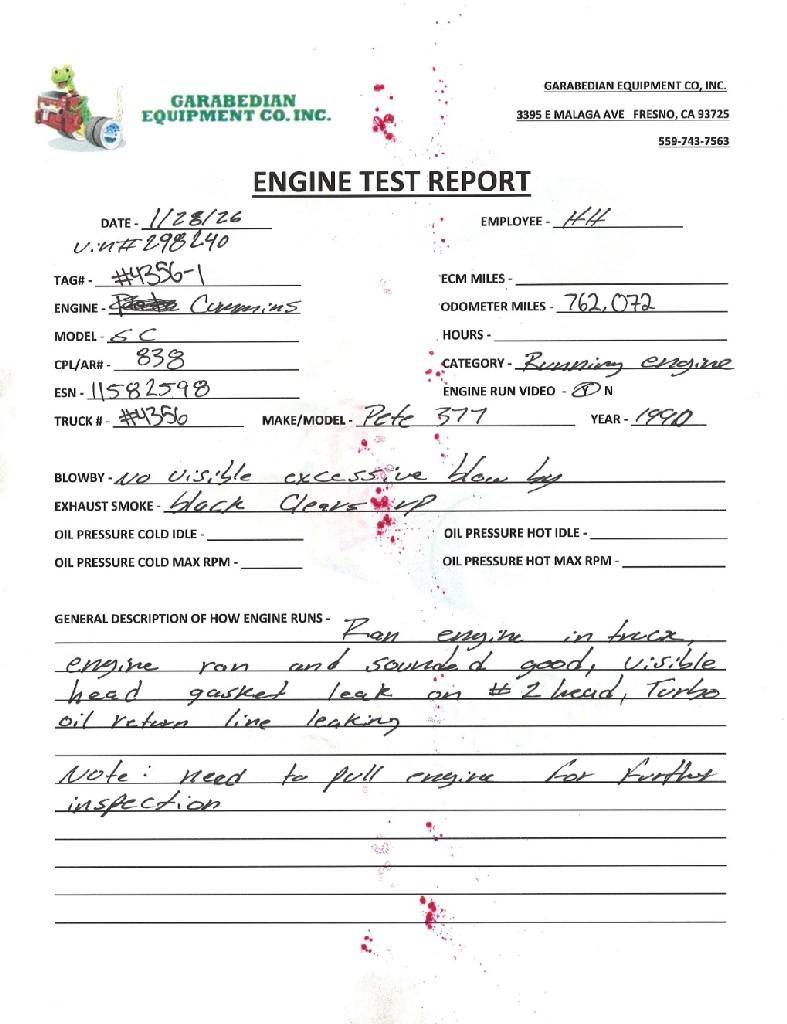 GARABEDIAN
EQUIPMENT CO. INC.
GARABEDIAN EQUIPMENT CO, INC.
3395 E MALAGA AVE FRESNO, CA 93725
559-743-7563
ENGINE TEST REPORT
DATE - 1/28/26 EMPLOYEE - HH
V.N# 298240
TAG# - #4356-1 ECM MILES -
ENGINE - Cummins ODOMETER MILES - 762,072
MODEL - SC HOURS -
CPL/AR# - 838 CATEGORY - Running engine
ESN - 11582598 ENGINE RUN VIDEO - Y N
TRUCK # - #4356 MAKE/MODEL - Pete 377 YEAR - 1990
BLOWBY - No visible excessive blow by
EXHAUST SMOKE - black Clears up
OIL PRESSURE COLD IDLE - OIL PRESSURE HOT IDLE -
OIL PRESSURE COLD MAX RPM - OIL PRESSURE HOT MAX RPM -
GENERAL DESCRIPTION OF HOW ENGINE RUNS - Ran engine in truck,
engine ran and sounded good, visible
head gasket leak on #2 head, Turbo
oil return line leaking
Note: need to pull engine for further
inspection